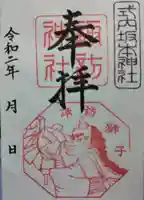 式内坂本神社
奉拝
諏訪神社
諏訪
獅子
令和二年 月 日